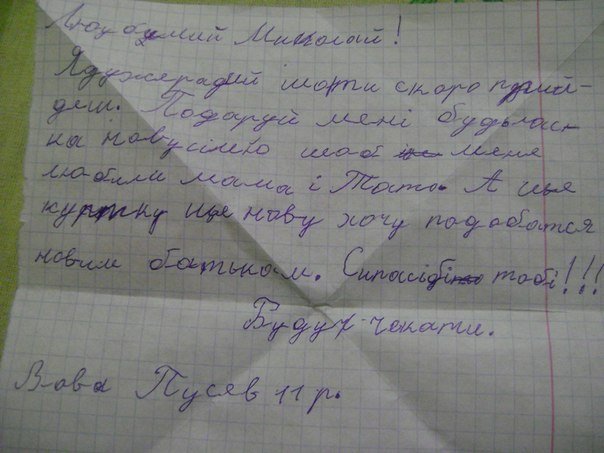 Любимий Миколай!
Я дуже радий шоти скоро прий-
деш. Подаруй мені будьлас-
ка нову сімю шоб мене
любили мама і Тато. А ише
куртку ише нову хочу подобатся
новим батькам. Спасібі тобі!!!
Буду чекати.
Вова Пусєв 11 р.